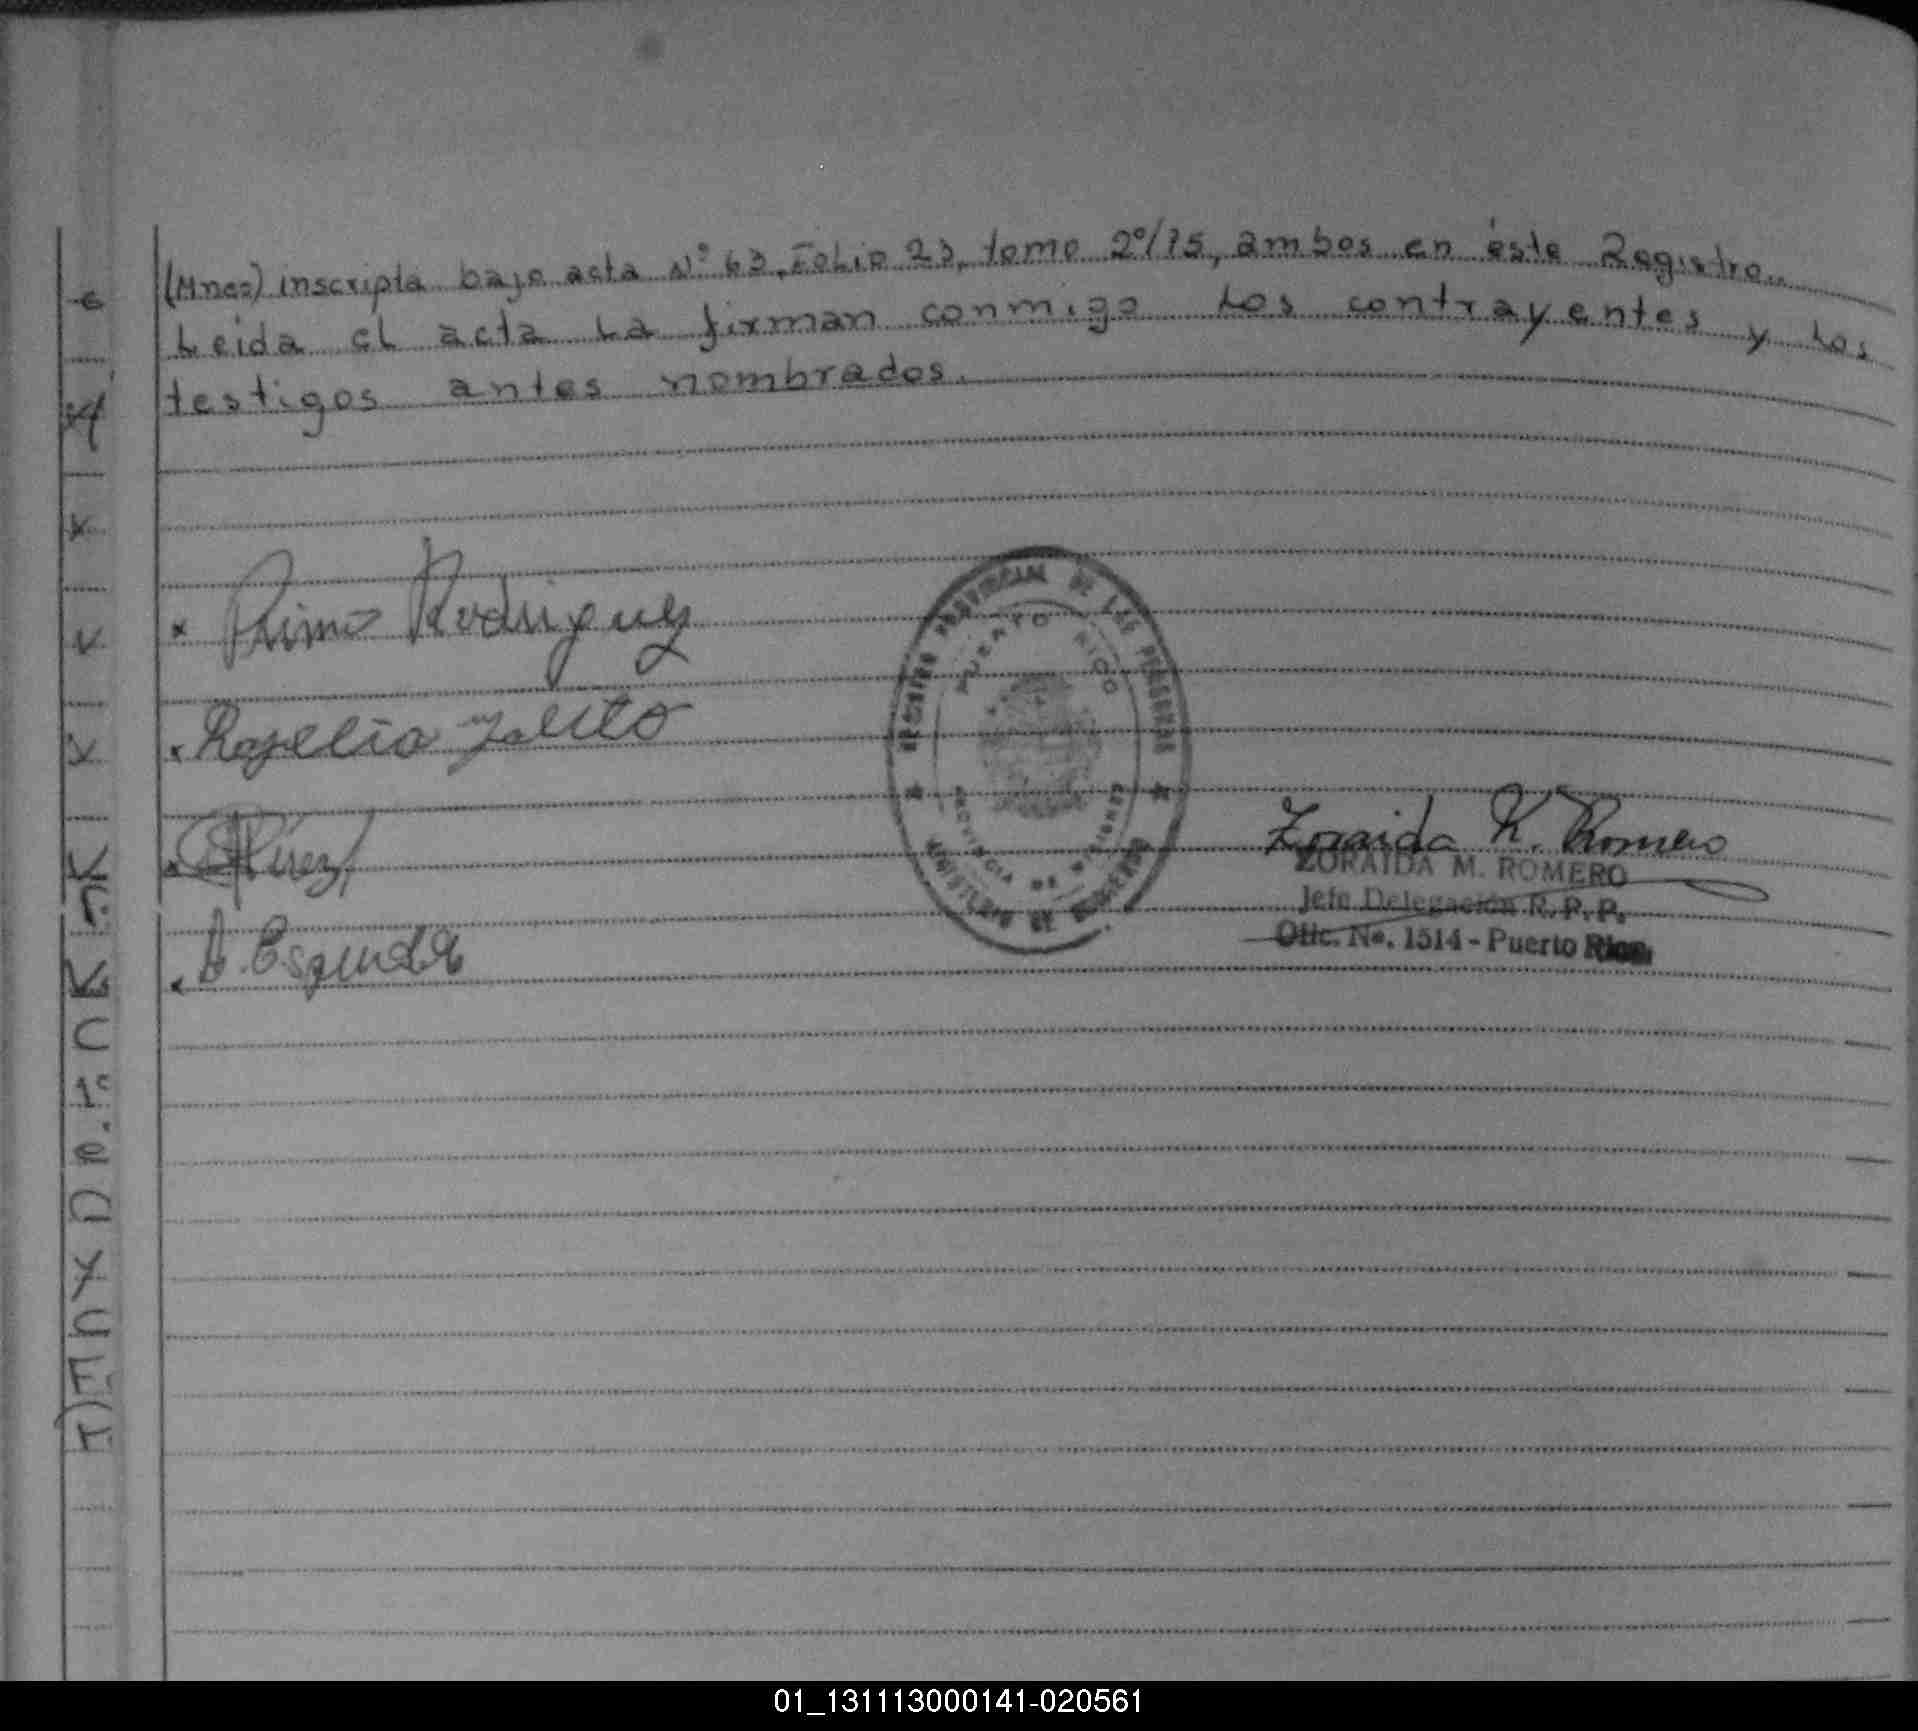 (Mnes) inscripta bajo acta Nº 63, Folio 23, tomo 2º/75, ambos en éste Registro..
Leida el acta la firman conmigo los contrayentes y los
testigos antes nombrados.
x Primo Rodriguez
x Rogelia
A. Esquivel
REGISTRO PROVINCIAL DE LAS PERSONAS
PUERTO RICO
PROVINCIA DE MISIONES
MINISTERIO DE GOBIERNO
Zoraida M. Romero
ZORAIDA M. ROMERO
Jefe Delegación R. P. P.
Ofic. No. 1514 - Puerto Rico
01_131113000141-020561